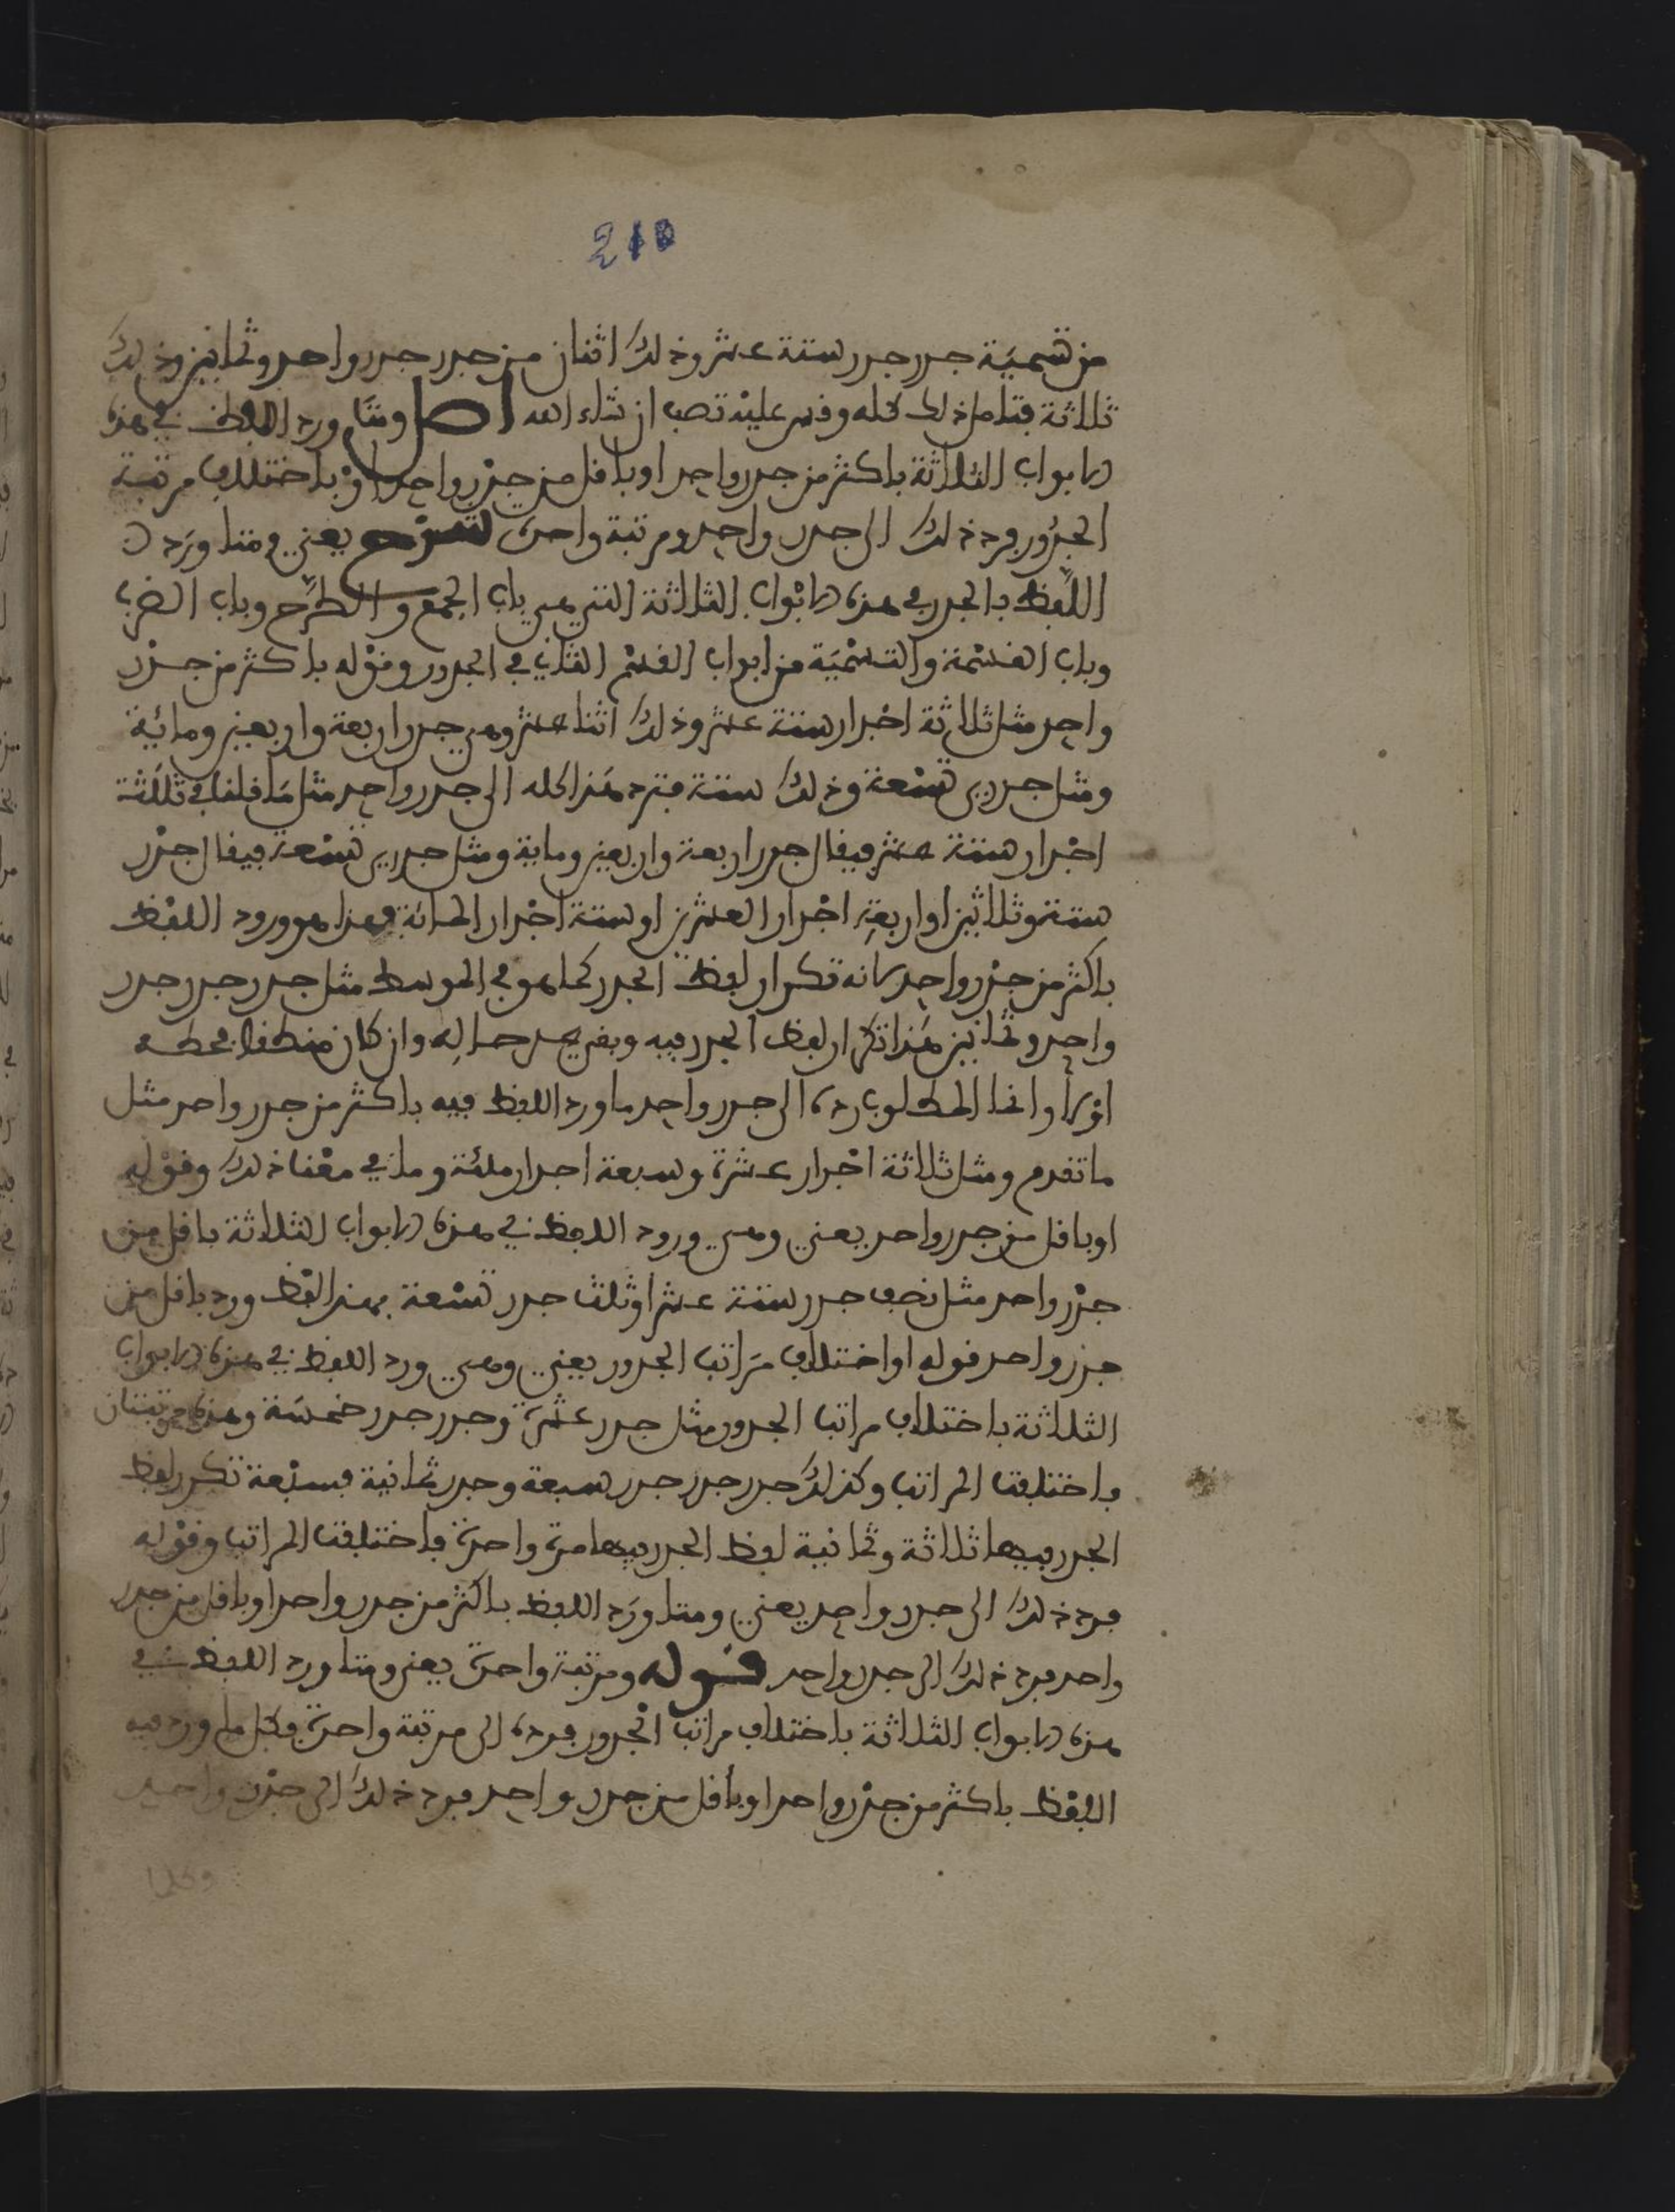 210
من تسمية جدر جدر ستة عشر وذلك اثنان من جدر جدر واحد وثمانين وذلك
ثلاثة فتامل ذلك كله وقس عليه تصب ان شاء الله اصل ومتى ورد اللفظ في هذه
الابواب الثلاثة باكثر من جدر واحد او باقل من جذر واحد او باختلاف مرتبة
الجذور فرد ذلك الى جدر واحد ومرتبة واحدة شرح يعني ومتا ورد
اللفظ بالجدر في هذه الابواب الثلاثة التي هي باب الجمع والطرح وباب الضرب
وباب القسمة والتسمية من ابواب القسم الثاني في الجدور وقوله باكثر من جذر
واحد مثل ثلاثة اجدار ستة عشر وذلك اثنا عشر وهي جدر اربعة واربعين ومائية
ومثل جدري تسعة وذلك ستة فترد هذا كله الى جدر واحد مثل ما قلنا في ثلثة
اجدار ستة عشر فيقال جدر اربعة واربعين وماية ومثل جدري تسعة فيقال جذر
ستة وثلاثين او اربعة اجدار العشرين او ستة اجدار المائة فهذا هو ورود اللفظ
باكثر من جذر واحد لانه تكرار لفظ الجدر كما هو في الموسط مثل جدر جدر جدر
واحد وثمانين هذا تكرار لفظ الجدر فيه وبقي على حاله وان كان منطقا في
اولا وانما المطلوب رده الى جدر واحد ما ورد اللفظ فيه باكثر من جدر واحد مثل
ما تقدم ومثل ثلاثة اجدار عشرة وسبعة اجدار مائة وما في معنا ذلك وقوله
او باقل من جدر واحد يعني ومتى ورود اللفظ في هذه الابواب الثلاثة باقل من
جذر واحد مثل نصف جدر ستة عشر او ثلث جدر تسعة بهذا لفظ ورد باقل من
جذر واحد قوله او اختلاف مراتب الجدور يعني ومتى ورد اللفظ في هذه الابواب
الثلاثة باختلاف مراتب الجدور مثل جدر عشرة وجدر جدر خمسة وهذه مرتبتان
واختلفت المراتب وكذلك جدر جدر جدر سبعة وجدر ثمانية فسبعة تكرر لفظ
الجدر فيها ثلاثة وثمانية لفظ الجدر فيها مرة واحدة فاختلفت المراتب وقوله
فرد ذلك الى جدر واحد يعني ومتا ورد اللفظ باكثر من جدر واحد او باقل من جدر
واحد فرد ذلك الى جدر واحد قوله ومرتبة واحدة يعني ومتا ورد اللفظ في
هذه الابواب الثلاثة باختلاف مراتب الجدور فرده الى مرتبة واحدة فكل ما ورد فيه
اللفظ باكثر من جذر واحد او باقل من جدر واحد فرد ذلك الى جذر واحد
وكلما